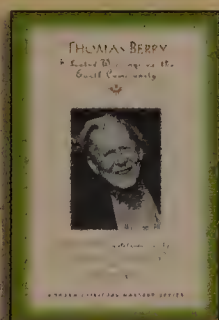 THOMAS BERRY
Selected Writings on the
Earth Community
MODERN SPIRITUAL MASTERS SERIES